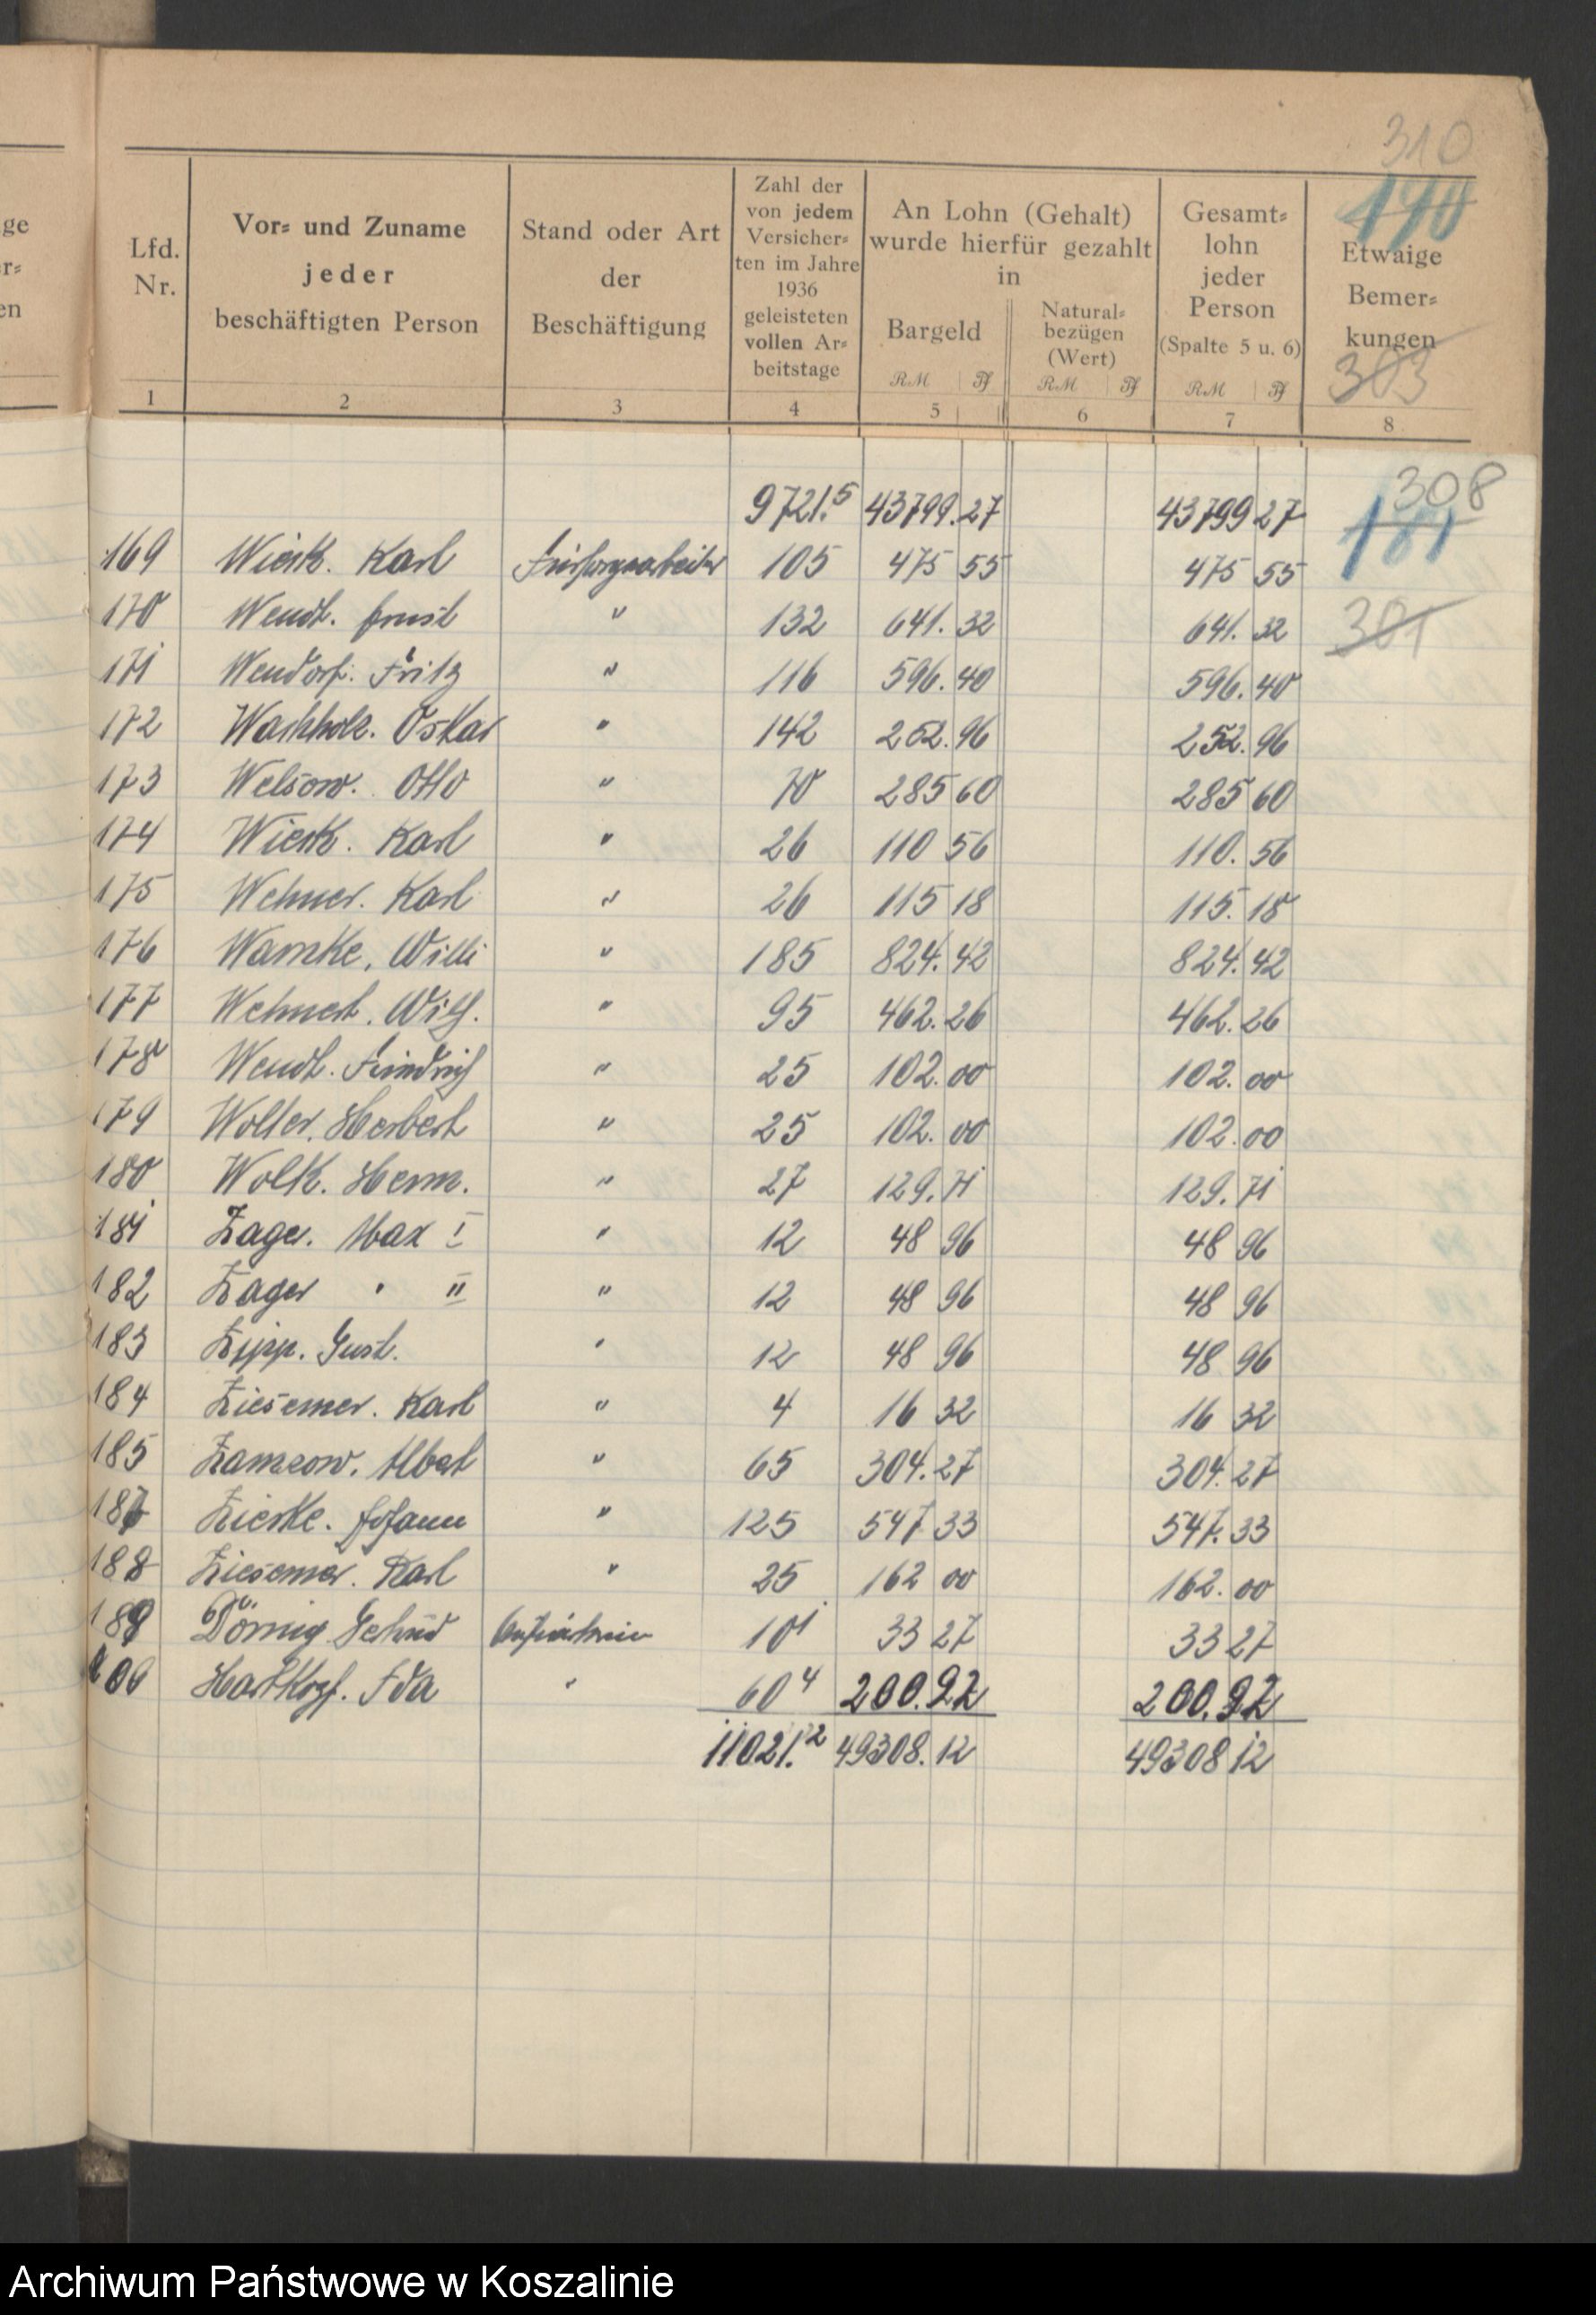 310
190
Lfd. Nr. | Vor= und Zuname jeder beschäftigten Person | Stand oder Art der Beschäftigung | Zahl der von jedem Versicher= ten im Jahre 1936 geleisteten vollen Ar= beitstage | An Lohn (Gehalt) wurde hierfür gezahlt in Bargeld RM Pf | Natural= bezügen (Wert) RM Pf | Gesamt= lohn jeder Person (Spalte 5 u. 6) RM Pf | Etwaige Bemer= kungen
303
1 2 3 4 5 6 7 8
308
9721.5 43799.27 43799 27
181
169 Wierk. Karl Fürsorgearbeiter 105 475 55 475 55
170 Wendt. Ernst " 132 641. 32 641. 32
301
171 Wendorf. Fritz " 116 596. 40 596. 40
172 Wachholz. Oskar " 142 252. 96 252. 96
173 Welsow. Otto " 70 285 60 285 60
174 Wierk. Karl " 26 110 56 110. 56
175 Wehner. Karl " 26 115 18 115. 18
176 Warnke, Willi " 185 824. 42 824. 42
177 Wehnert. Wilh. " 95 462. 26 462. 26
178 Wendt. Friedrich " 25 102. 00 102. 00
179 Wolter. Herbert " 25 102. 00 102. 00
180 Wolk. Herm. " 27 129. 71 129. 71
181 Zager. Max I " 12 48 96 48 96
182 Zager " II " 12 48 96 48 96
183 Zipp. Gust. " 12 48 96 48 96
184 Ziesemer. Karl " 4 16 32 16 32
185 Zamzow. Albert " 65 304. 27 304. 27
Zierke. Johann " 125 547 33 547. 33
188 Ziesemer. Karl " 25 162 00 162. 00
189 10 1 33 27 33 27
Ida " 60 4 200. 92 200. 92
11021.2 49308. 12 49308 12
Archiwum Państwowe w Koszalinie